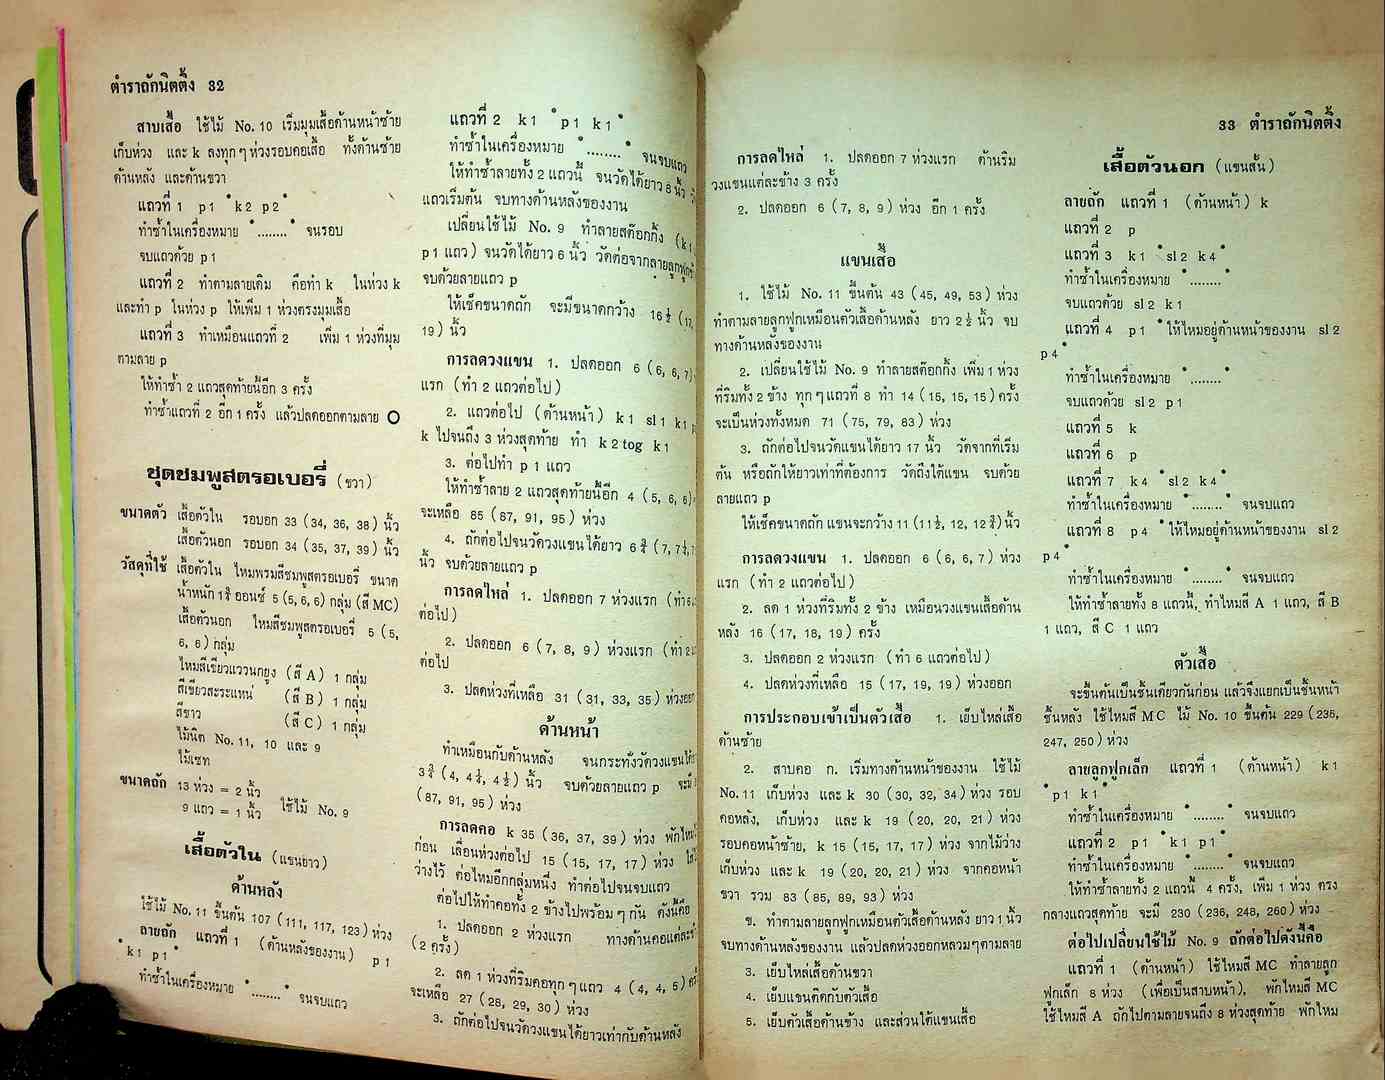 ตำราถักนิตติ้ง 32
สาบเสื้อ ใช้ไม้ No. 10 เริ่มมุมเสื้อด้านหน้าซ้าย
เก็บห่วง และ k ลงทุกๆห่วงรอบคอเสื้อ ทั้งด้านซ้าย
ด้านหลัง และด้านขวา
แถวที่ 1 p1 *k2 p2*
ทำซ้ำในเครื่องหมาย *........* จนรอบ
จบแถวด้วย p1
แถวที่ 2 ทำตามลายเดิม คือทำ k ในห่วง k
และทำ p ในห่วง p ให้เพิ่ม 1 ห่วงตรงมุมเสื้อ
แถวที่ 3 ทำเหมือนแถวที่ 2 เพิ่ม 1 ห่วงที่มุม
ตามลาย p
ให้ทำซ้ำ 2 แถวสุดท้ายนี้อีก 3 ครั้ง
ทำซ้ำแถวที่ 2 อีก 1 ครั้ง แล้วปลดออกตามลาย
ชุดชมพูสตรอเบอรี่ (ขวา)
ขนาดตัว เสื้อตัวใน รอบอก 33 (34, 36, 38) นิ้ว
เสื้อตัวนอก รอบอก 34 (35, 37, 39) นิ้ว
วัสดุที่ใช้ เสื้อตัวใน ไหมพรมสีชมพูสตรอเบอรี่ ขนาด
น้ำหนัก 1¾ ออนซ์ 5 (5, 6, 6) กลุ่ม (สี MC)
เสื้อตัวนอก ไหมสีชมพูสตรอเบอรี่ 5 (5,
6, 6) กลุ่ม
ไหมสีเขียวแววนกยูง (สี A) 1 กลุ่ม
สีเขียวสะระแหน่ (สี B) 1 กลุ่ม
สีขาว (สี C) 1 กลุ่ม
ไม้นิต No. 11, 10 และ 9
ไม้เซท
ขนาดถัก 13 ห่วง = 2 นิ้ว
9 แถว = 1 นิ้ว ใช้ไม้ No. 9
เสื้อตัวใน (แขนยาว)
ด้านหลัง
ใช้ไม้ No. 11 ขึ้นต้น 107 (111, 117, 123) ห่วง
ลายถัก แถวที่ 1 (ด้านหลังของงาน) p1
*k1 p1*
ทำซ้ำในเครื่องหมาย *........* จนจบแถว
แถวที่ 2 k1 *p1 k1*
ทำซ้ำในเครื่องหมาย *........* จนจบแถว
ให้ทำซ้ำลายทั้ง 2 แถวนี้ จนวัดได้ยาว 8 นิ้ว
แถวเริ่มต้น จบทางด้านหลังของงาน
เปลี่ยนใช้ไม้ No. 9 ทำลายสต๊อกกิ้ง (k1
p1 แถว) จนวัดได้ยาว 6 นิ้ว วัดต่อจากลายลูกฟูก
จบด้วยลายแถว p
ให้เช็คขนาดถัก จะมีขนาดกว้าง 16½ (17,
19) นิ้ว
การลดวงแขน 1. ปลดออก 6 (6, 6, 7)
แรก (ทำ 2 แถวต่อไป)
2. แถวต่อไป (ด้านหน้า) k1 sl1 k1
k ไปจนถึง 3 ห่วงสุดท้าย ทำ k2tog k1
3. ต่อไปทำ p 1 แถว
ให้ทำซ้ำลาย 2 แถวสุดท้ายนี้อีก 4 (5, 6, 6)
จะเหลือ 85 (87, 91, 95) ห่วง
4. ถักต่อไปจนวัดวงแขนได้ยาว 6¾ (7,
นิ้ว จบด้วยลายแถว p
การลดไหล่ 1. ปลดออก 7 ห่วงแรก (ทำ
ต่อไป)
2. ปลดออก 6 (7, 8, 9) ห่วงแรก (ทำ
ต่อไป
3. ปลดห่วงที่เหลือ 31 (31, 33, 35) ห่วงออก
ด้านหน้า
ทำเหมือนกับด้านหลัง จนกระทั่งวัดวงแขนได้
3¾ (4, 4¼, 4½) นิ้ว จบด้วยลายแถว p
(87, 91, 95) ห่วง
การลดคอ k 35 (36, 37, 39) ห่วง พักไหม
ก่อน เลื่อนห่วงต่อไป 15 (15, 17, 17) ห่วง
ว่างไว้ ต่อไหมอีกกลุ่มหนึ่ง ทำต่อไปจนจบแถว
ต่อไปให้ทำคอทั้ง 2 ข้างไปพร้อมๆกัน ดังนี้คือ
1. ปลดออก 2 ห่วงแรก ทางด้านคอแต่ละข้าง
(2 ครั้ง)
2. ลด 1 ห่วงที่ริมคอทุกๆแถว 4 (4, 4, 5)
จะเหลือ 27 (28, 29, 30) ห่วง
3. ถักต่อไปจนวัดวงแขนได้ยาวเท่ากับด้านหลัง
33 ตำราถักนิตติ้ง
การลดไหล่ 1. ปลดออก 7 ห่วงแรก ด้านริม
วงแขนแต่ละข้าง 3 ครั้ง
2. ปลดออก 6 (7, 8, 9) ห่วง อีก 1 ครั้ง
แขนเสื้อ
1. ใช้ไม้ No. 11 ขึ้นต้น 43 (45, 49, 53) ห่วง
ทำตามลายลูกฟูกเหมือนตัวเสื้อด้านหลัง ยาว 2½ นิ้ว จบ
ทางด้านหลังของงาน
2. เปลี่ยนใช้ไม้ No. 9 ทำลายสต๊อกกิ้ง เพิ่ม 1 ห่วง
ที่ริมทั้ง 2 ข้าง ทุกๆแถวที่ 8 ทำ 14 (15, 15, 15) ครั้ง
จะเป็นห่วงทั้งหมด 71 (75, 79, 83) ห่วง
3. ถักต่อไปจนวัดแขนได้ยาว 17 นิ้ว วัดจากที่เริ่ม
ต้น หรือถักให้ยาวเท่าที่ต้องการ วัดถึงใต้แขน จบด้วย
ลายแถว p
ให้เช็คขนาดถัก แขนจะกว้าง 11 (11½, 12, 12¾) นิ้ว
การลดวงแขน 1. ปลดออก 6 (6, 6, 7) ห่วง
แรก (ทำ 2 แถวต่อไป)
2. ลด 1 ห่วงที่ริมทั้ง 2 ข้าง เหมือนวงแขนเสื้อด้าน
หลัง 16 (17, 18, 19) ครั้ง
3. ปลดออก 2 ห่วงแรก (ทำ 6 แถวต่อไป)
4. ปลดห่วงที่เหลือ 15 (17, 19, 19) ห่วงออก
การประกอบเข้าเป็นตัวเสื้อ 1. เย็บไหล่เสื้อ
ด้านซ้าย
2. สาบคอ ก. เริ่มทางด้านหน้าของงาน ใช้ไม้
No. 11 เก็บห่วง และ k 30 (30, 32, 34) ห่วง รอบ
คอหลัง, เก็บห่วง และ k 19 (20, 20, 21) ห่วง
รอบคอหน้าซ้าย, k 15 (15, 17, 17) ห่วง จากไม้ว่าง
เก็บห่วง และ k 19 (20, 20, 21) ห่วง จากคอหน้า
ขวา รวม 83 (85, 89, 93) ห่วง
ข. ทำตามลายลูกฟูกเหมือนตัวเสื้อด้านหลัง ยาว 1 นิ้ว
จบทางด้านหลังของงาน แล้วปลดห่วงออกหลวมๆตามลาย
3. เย็บไหล่เสื้อด้านขวา
4. เย็บแขนติดกับตัวเสื้อ
5. เย็บตัวเสื้อด้านข้าง และส่วนใต้แขนเสื้อ
เสื้อตัวนอก (แขนสั้น)
ลายถัก แถวที่ 1 (ด้านหน้า) k
แถวที่ 2 p
แถวที่ 3 k1 *sl2 k4*
ทำซ้ำในเครื่องหมาย *........*
จบแถวด้วย sl2 k1
แถวที่ 4 p1 *ให้ไหมอยู่ด้านหน้าของงาน sl2
p4*
ทำซ้ำในเครื่องหมาย *........*
จบแถวด้วย sl2 p1
แถวที่ 5 k
แถวที่ 6 p
แถวที่ 7 k4 *sl2 k4*
ทำซ้ำในเครื่องหมาย *........* จนจบแถว
แถวที่ 8 p4 *ให้ไหมอยู่ด้านหน้าของงาน sl2
p4*
ทำซ้ำในเครื่องหมาย *........* จนจบแถว
ให้ทำซ้ำลายทั้ง 8 แถวนี้, ทำไหมสี A 1 แถว, สี B
1 แถว, สี C 1 แถว
ตัวเสื้อ
จะขึ้นต้นเป็นชิ้นเดียวกันก่อน แล้วจึงแยกเป็นชิ้นหน้า
ชิ้นหลัง ใช้ไหมสี MC ไม้ No. 10 ขึ้นต้น 229 (235,
247, 250) ห่วง
ลายลูกฟูกเล็ก แถวที่ 1 (ด้านหน้า) k1
*p1 k1*
ทำซ้ำในเครื่องหมาย *........* จนจบแถว
แถวที่ 2 p1 *k1 p1*
ทำซ้ำในเครื่องหมาย *........* จนจบแถว
ให้ทำซ้ำลายทั้ง 2 แถวนี้ 4 ครั้ง, เพิ่ม 1 ห่วง ตรง
กลางแถวสุดท้าย จะมี 230 (236, 248, 260) ห่วง
ต่อไปเปลี่ยนใช้ไม้ No. 9 ถักต่อไปดังนี้คือ
แถวที่ 1 (ด้านหน้า) ใช้ไหมสี MC ทำลายลูก
ฟูกเล็ก 8 ห่วง (เพื่อเป็นสาบหน้า), พักไหมสี MC
ใช้ไหมสี A ถักไปตามลายจนถึง 8 ห่วงสุดท้าย พักไหม